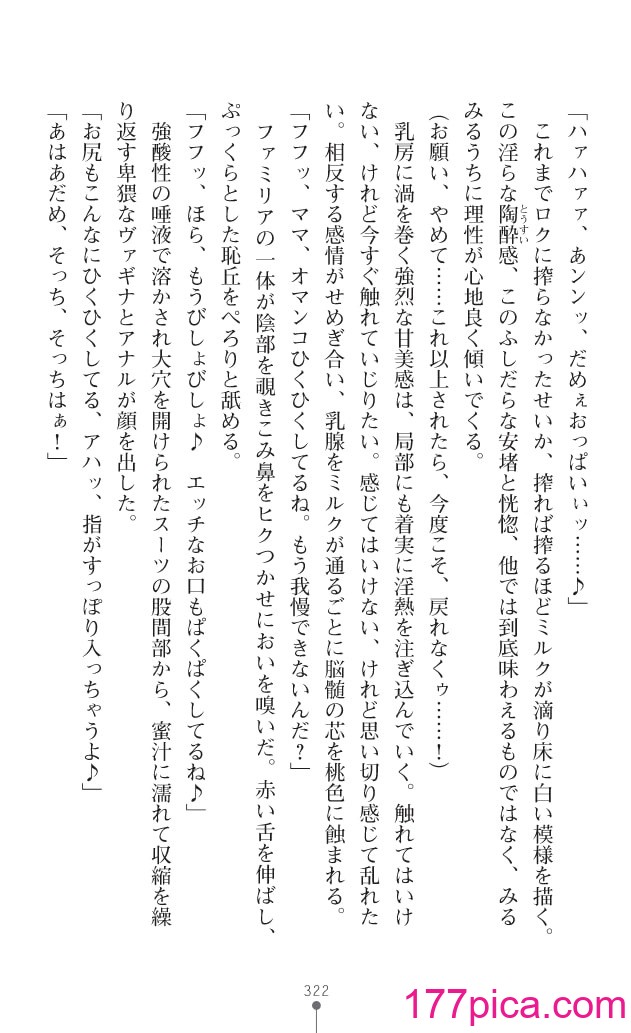 「ハァハァァ、あンンッ、だめぇおっぱいぃッ……♪」
これまでロクに搾らなかったせいか、搾れば搾るほどミルクが滴り床に白い模様を描く。
この淫らな陶酔感、このふしだらな安堵と恍惚、他では到底味わえるものではなく、みる
とうすい
みるうちに理性が心地良く傾いでくる。
(お願い、やめて……これ以上されたら、今度こそ、戻れなくゥ……!)
乳房に渦を巻く強烈な甘美感は、局部にも着実に淫熱を注ぎ込んでいく。触れてはいけ
ない、けれど今すぐ触れていじりたい。感じてはいけない、けれど思い切り感じて乱れた
い。相反する感情がせめぎ合い、乳腺をミルクが通るごとに脳髄の芯を桃色に蝕まれる。
「フフッ、ママ、オマンコひくひくしてるね。もう我慢できないんだ?」
ファミリアの一体が陰部を覗きこみ鼻をヒクつかせにおいを嗅いだ。赤い舌を伸ばし、
ぷっくらとした恥丘をぺろりと舐める。
「フフッ、ほら、もうびしょびしょ♪　エッチなお口もぱくぱくしてるね♪」
強酸性の唾液で溶かされ大穴を開けられたスーツの股間部から、蜜汁に濡れて収縮を繰
り返す卑猥なヴァギナとアナルが顔を出した。
「お尻もこんなにひくひくしてる、アハッ、指がすっぽり入っちゃうよ♪」
「あはあだめ、そっち、そっちはぁ!」
322
177pica.com